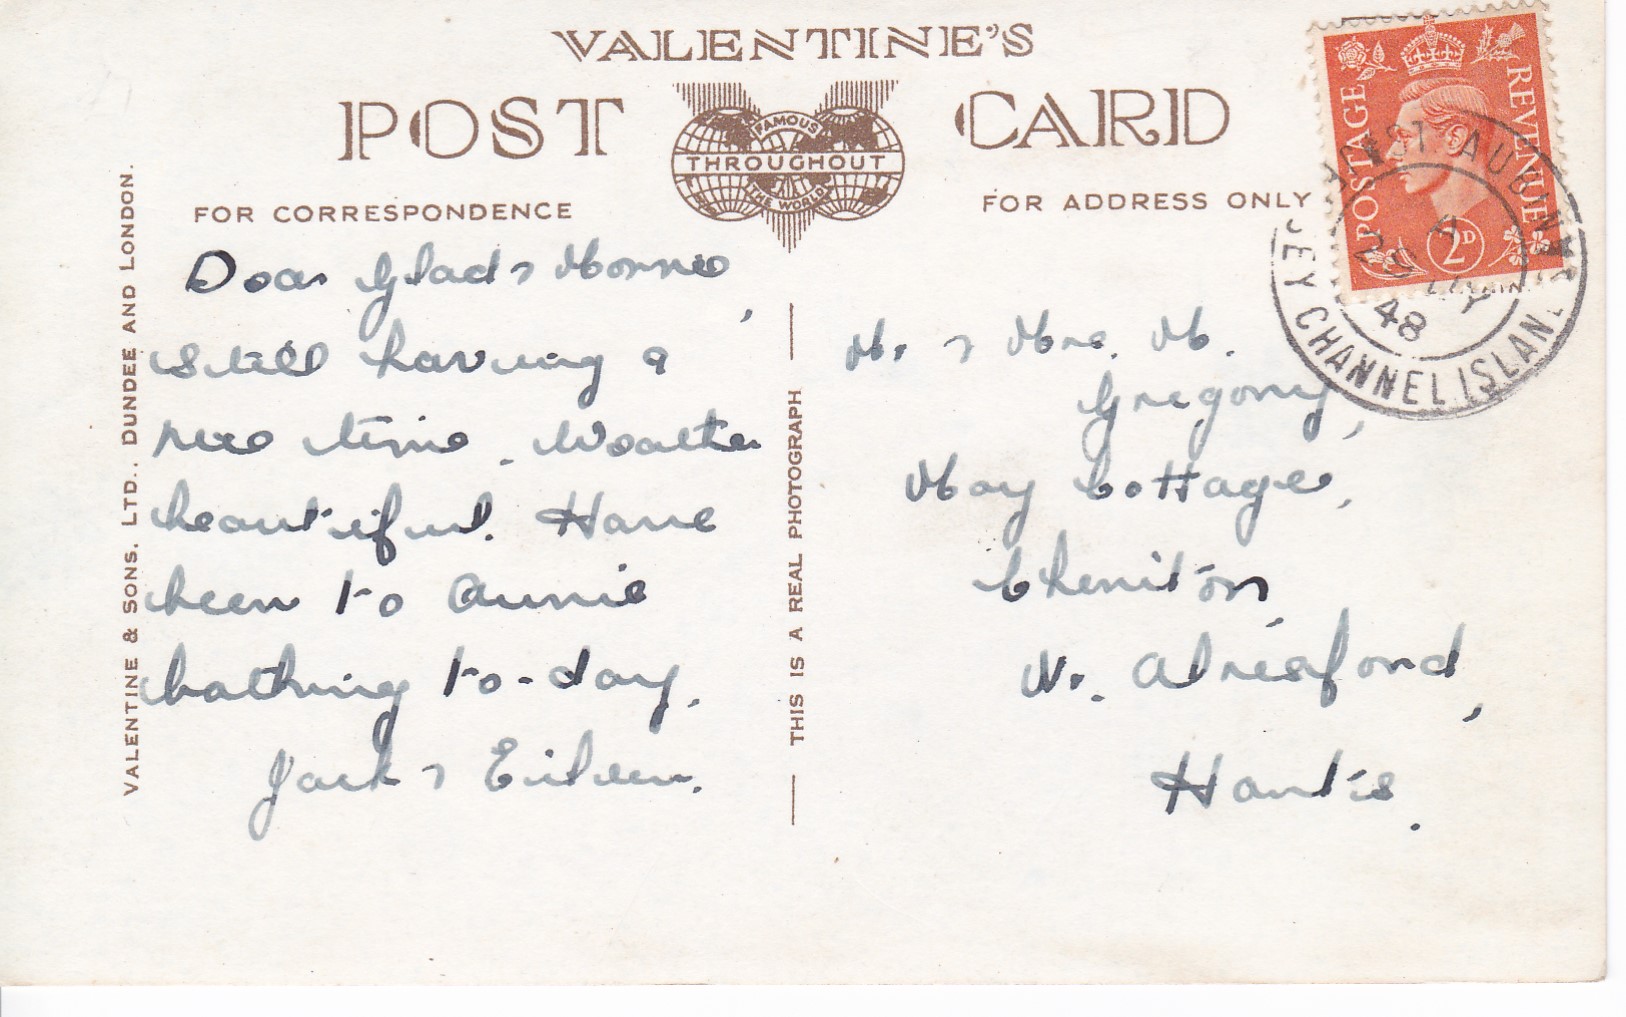 VALENTINE'S
POST CARD
FAMOUS
THROUGHOUT
THE WORLD
FOR CORRESPONDENCE
FOR ADDRESS ONLY
POSTAGE REVENUE
2D
ST AUBIN'S
JERSEY CHANNEL ISLAN
48
VALENTINE & SONS, LTD., DUNDEE AND LONDON.
THIS IS A REAL PHOTOGRAPH
Dear Glad &
still having a
nice time. Weather
beautiful. Have
been to
bathing to-day.
Jack & Eileen.
Mr. & Mrs. M.
Gregory,
May Cottage,
Cheriton
Nr. Alresford,
Hants.